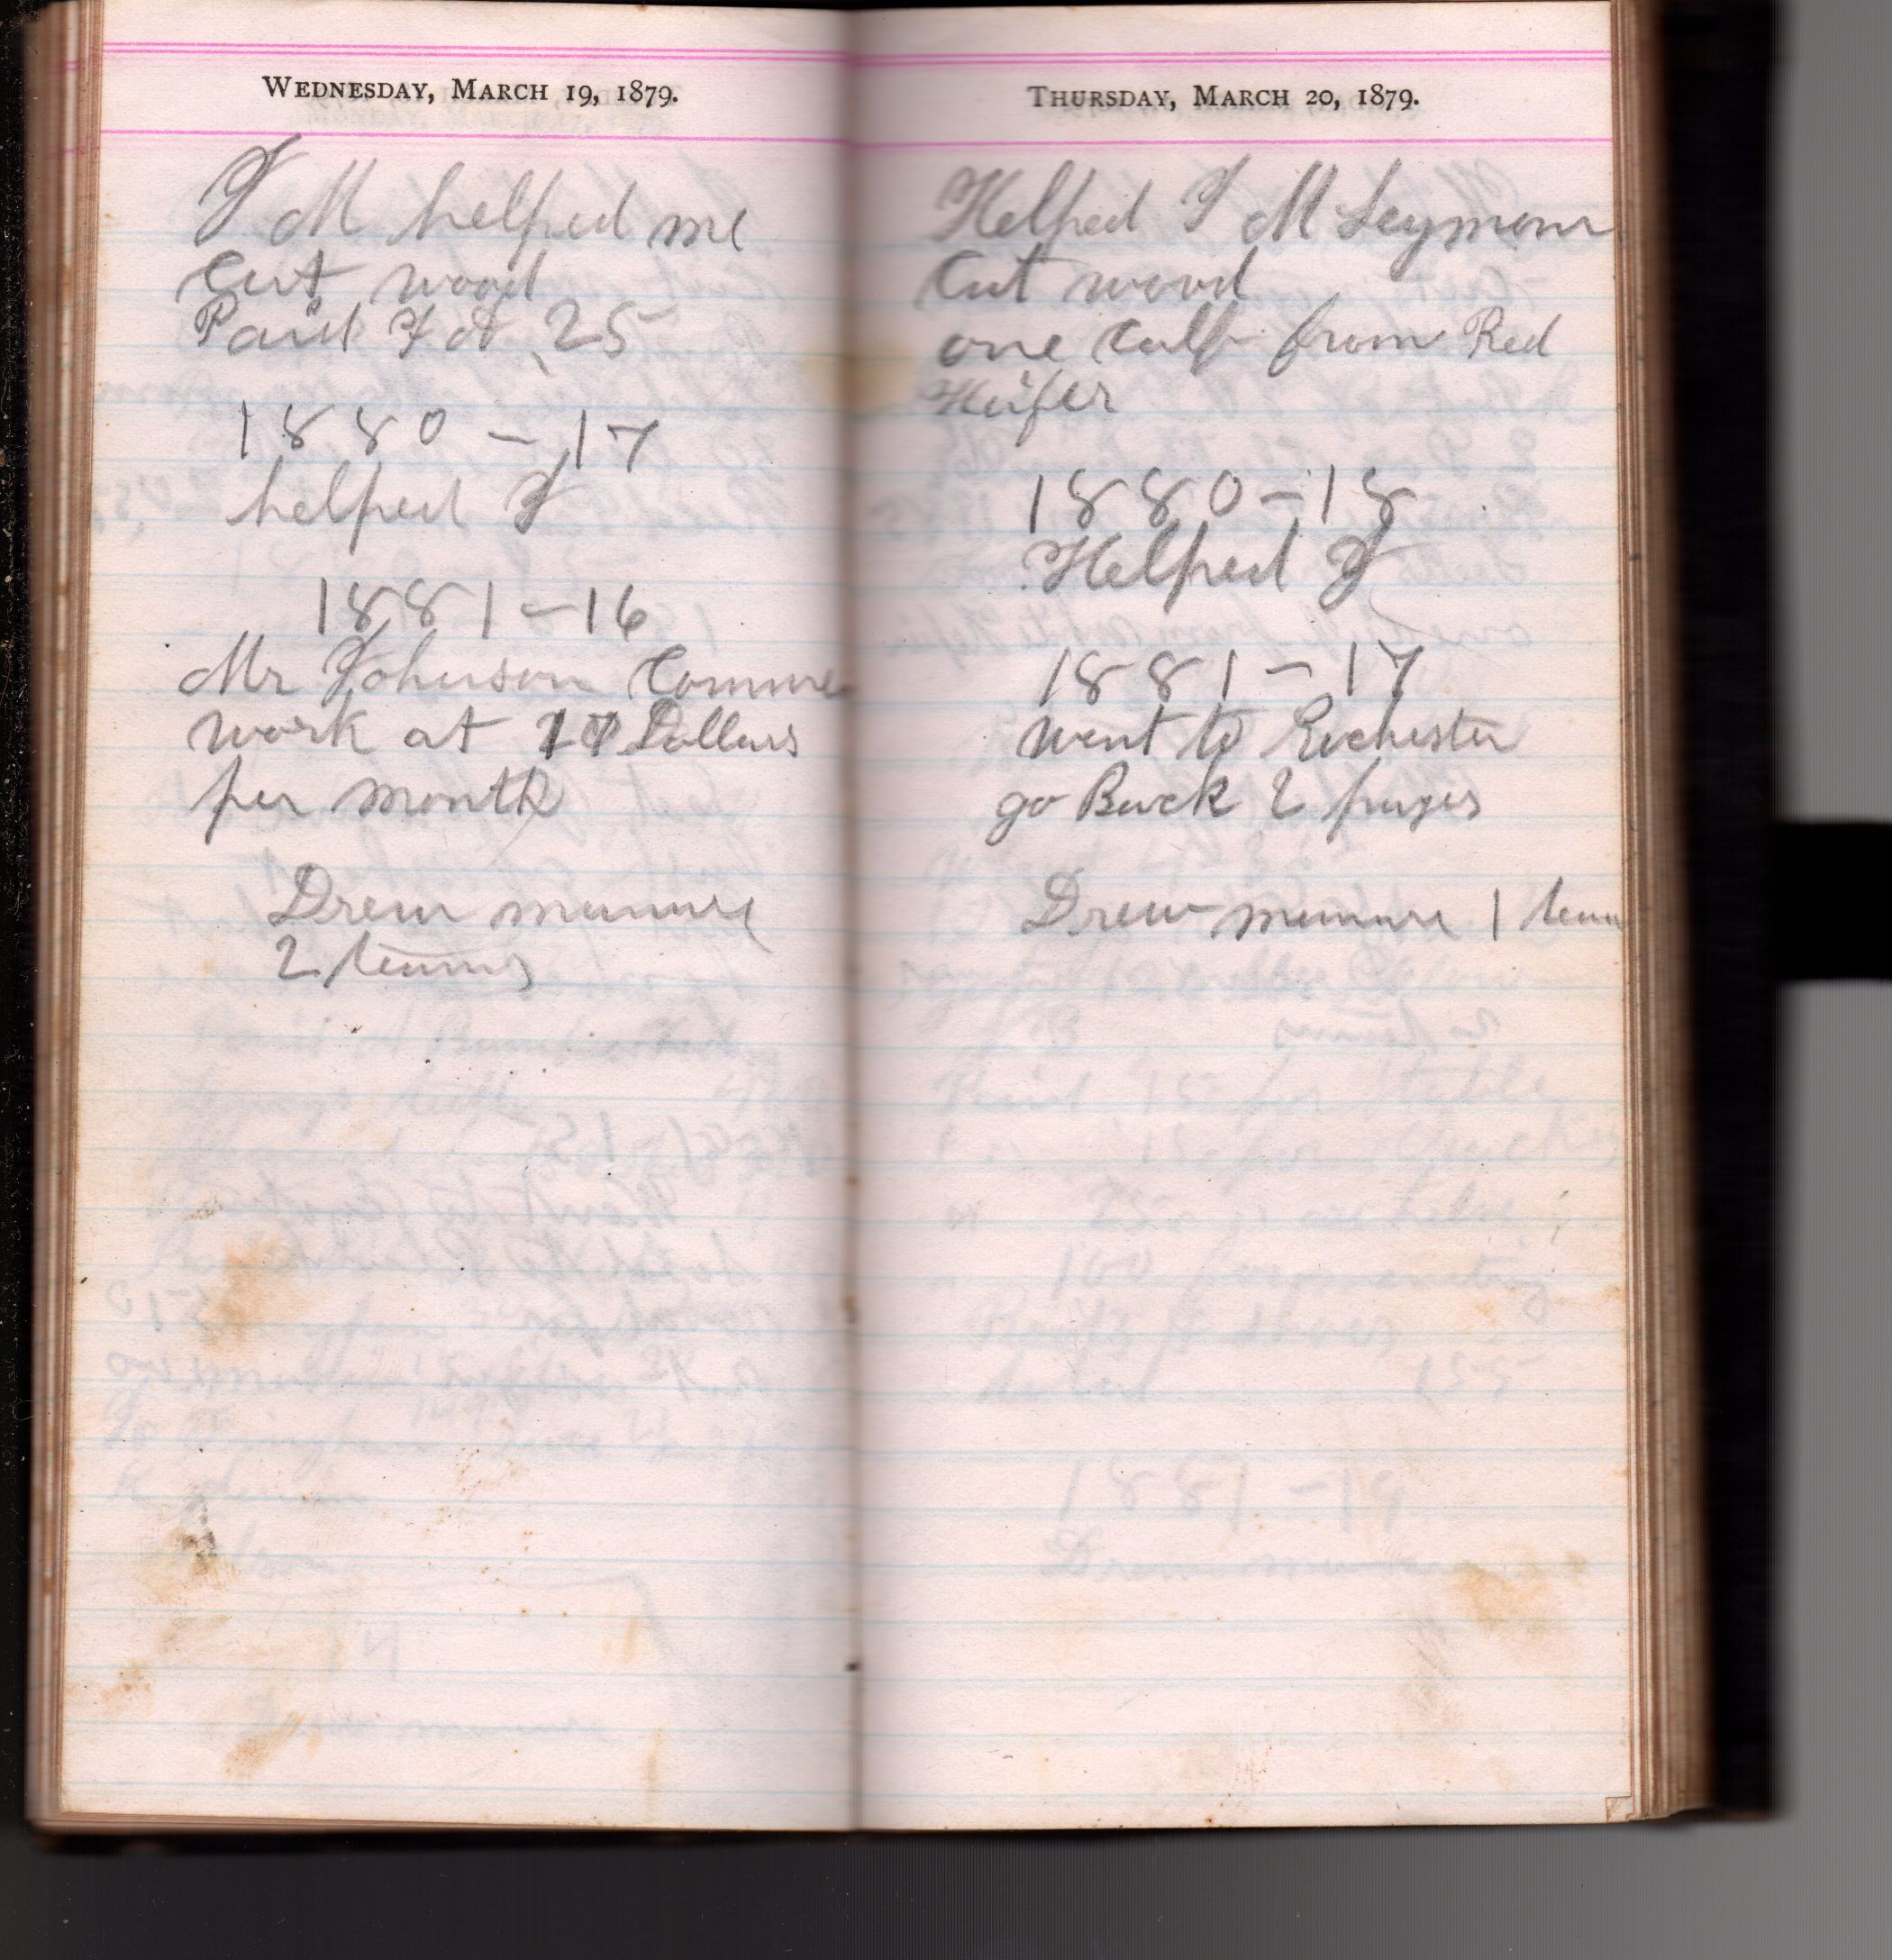 WEDNESDAY, MARCH 19, 1879.
M helped me
Cut wood
Paid .25
1880 - 17
helped
1881 - 16
Mr Johnson Comme
work at 17 Dollars
per month
Drew manure
2 teams
THURSDAY, MARCH 20, 1879.
Helped M Seymour
Cut wood
one Calf from Red
Heifer
1880 - 18
Helped
1881 - 17
went to Rochester
go Back 2 pages
Drew manure 1 team